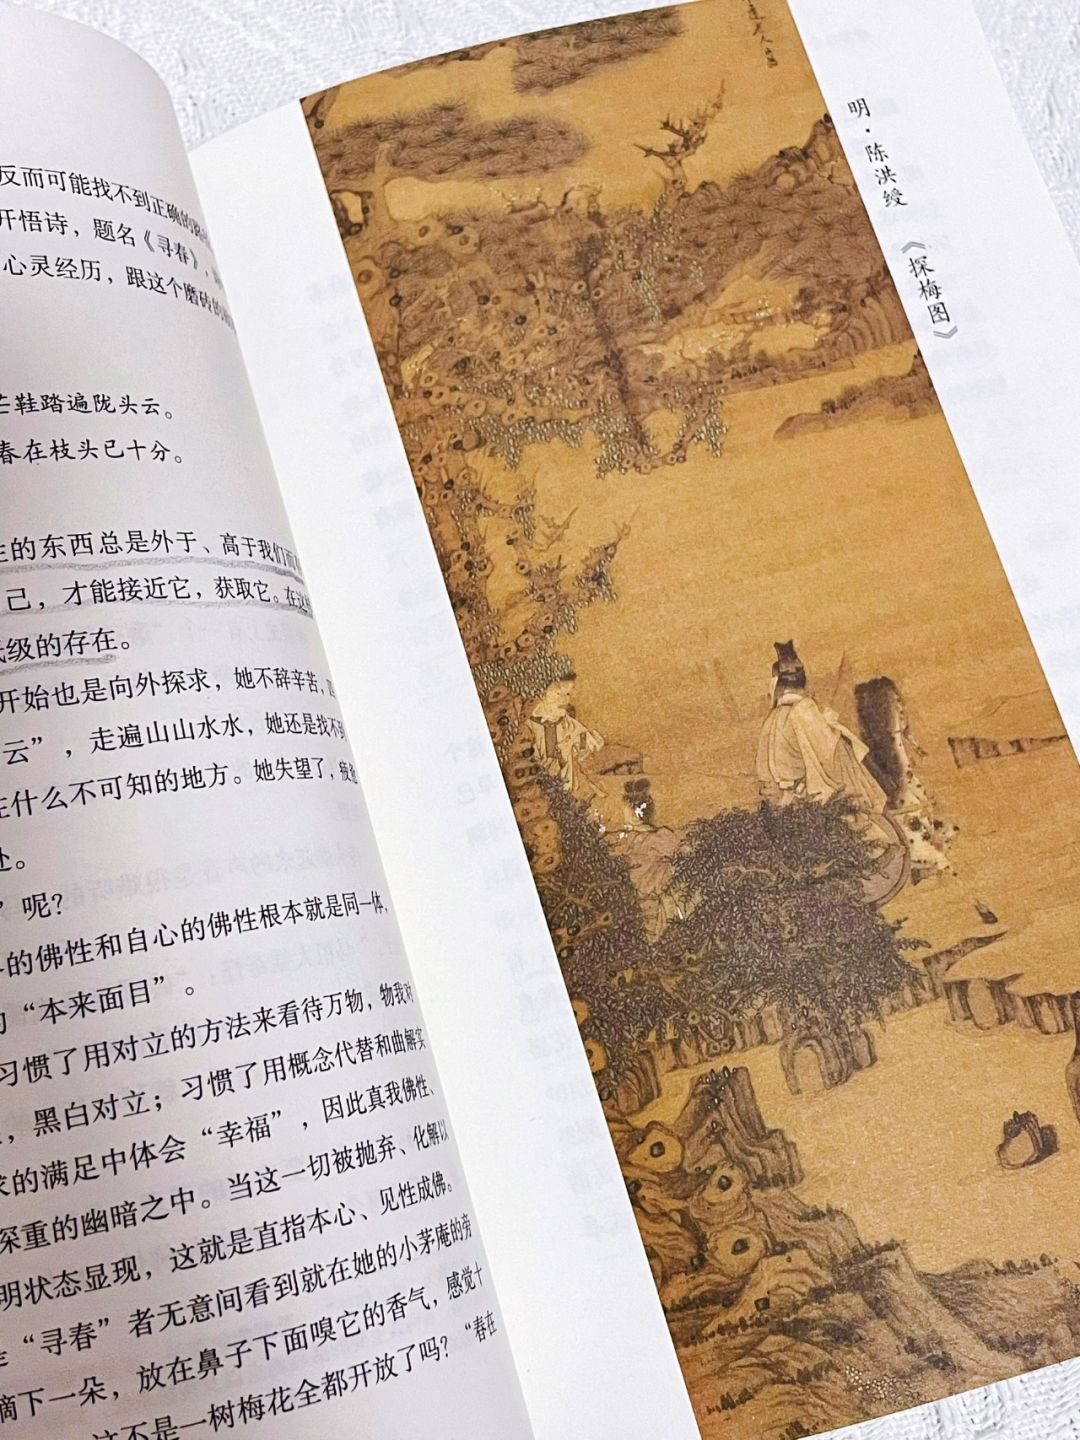 反而可能找不到正确的
开悟诗，题名《寻春》，
心灵经历，跟这个磨砖的
芒鞋踏遍陇头云。
春在枝头已十分。
的东西总是外于、高于我们而
己，才能接近它，获取它。在这
级的存在。
开始也是向外探求，她不辞辛苦，
云”，走遍山山水水，她还是找不到
在什么不可知的地方。她失望了，疲惫
处。
”呢？
的佛性和自心的佛性根本就是同一体，
的“本来面目”。
习惯了用对立的方法来看待万物，物我对
，黑白对立；习惯了用概念代替和曲解实
求的满足中体会“幸福”，因此真我佛性、
深重的幽暗之中。当这一切被抛弃、化解以
明状态显现，这就是直指本心、见性成佛。
“寻春”者无意间看到就在她的小茅庵的旁
摘下一朵，放在鼻子下面嗅它的香气，感觉十
这不是一树梅花全都开放了吗？“春在
明·陈洪绶 《探梅图》